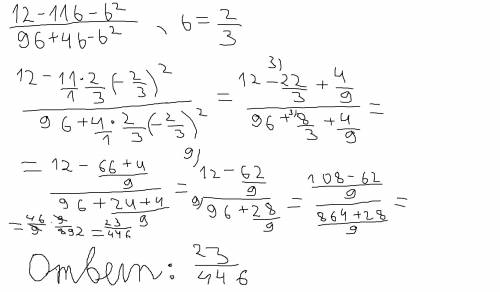 (12-11b-b²)/(96+4b-b²), b = 2/3
(12 - 11/1 · 2/3 (-2/3)²)/(96 + 4/1 · 2/3 (-2/3)²) = (12 - ³⁾22/3 + 4/9)/(96 + ³⁾8/3 + 4/9) =
= (12 - (66+4)/9)/(96 + (24+4)/9) = (⁹⁾12 - 62/9)/(⁹⁾96 + 28/9) = ((108-62)/9)/((864+28)/9) =
= 46/9 · 9/892 = 23/446
Ответ: 23/446